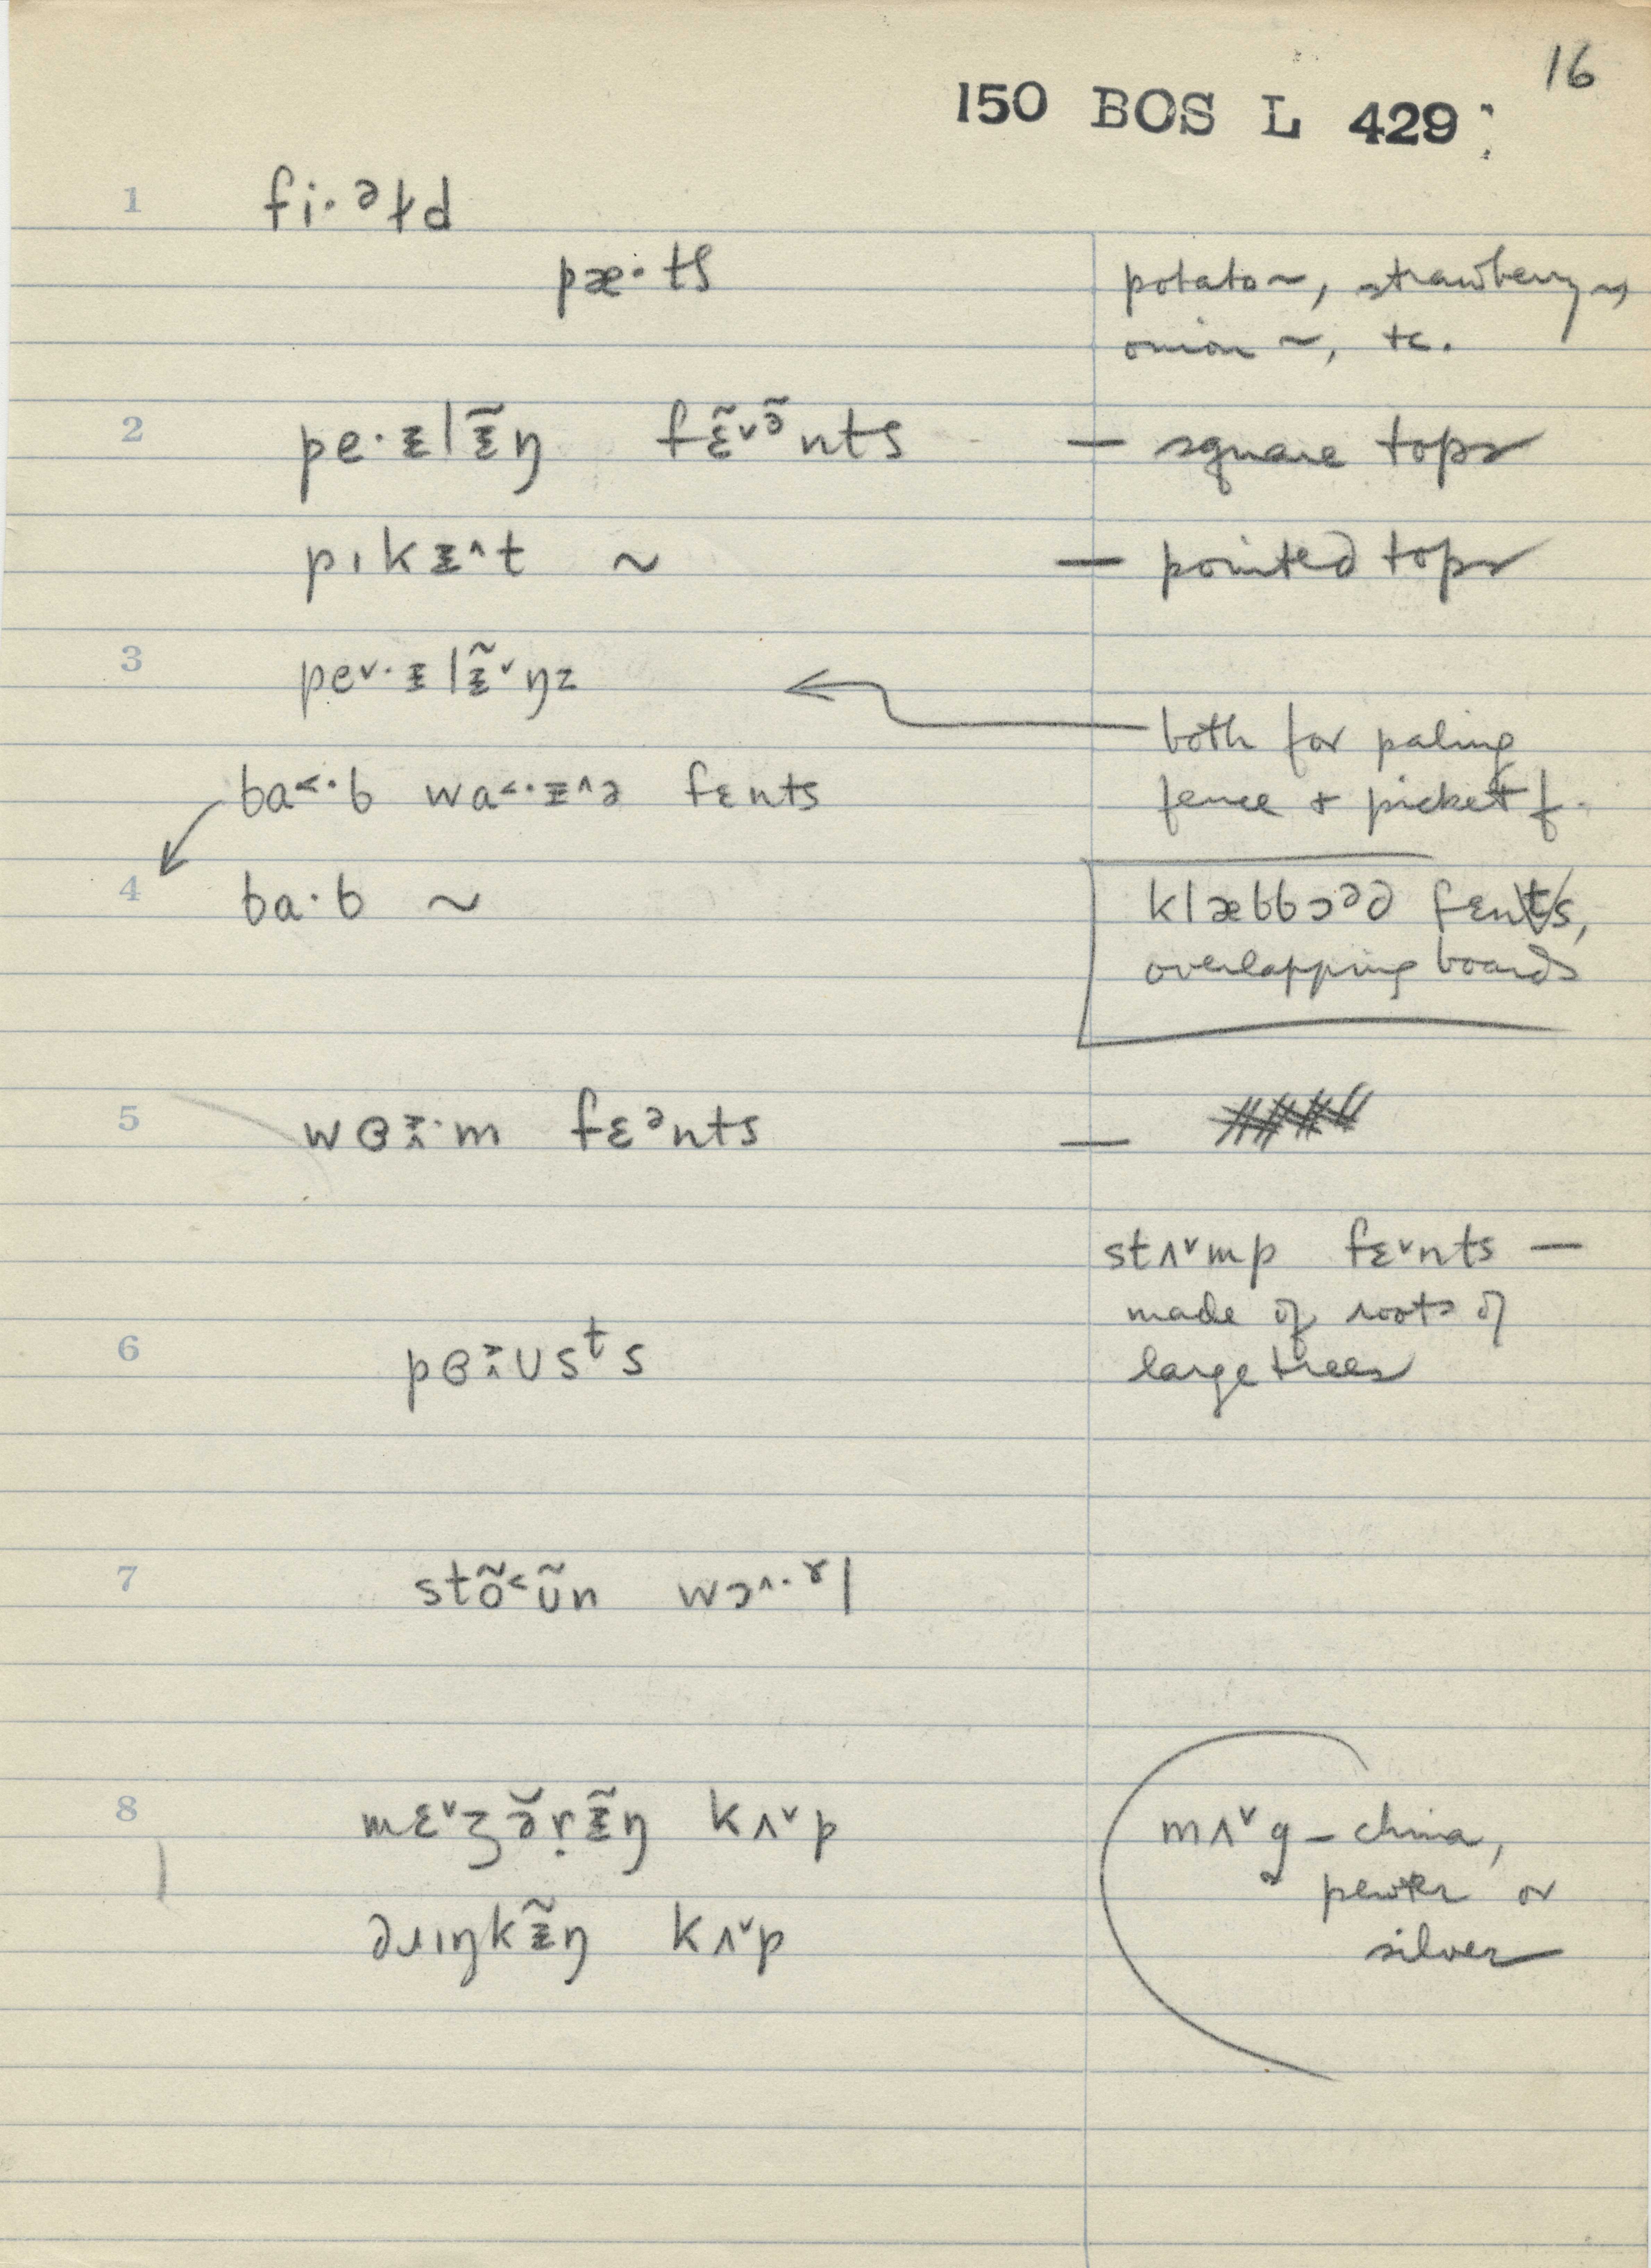 16
150 BOS L 429
1 fi·ᵊɫd
pæ·tʃ
potato ~, strawberry ~,
onion ~, tc.
2 pe·ᵻlᵻ̃ŋ fɛ̃˅ə̃nts — square tops
pɪkᵻ˄t ~ — pointed tops
3 pe˅·ᵻlᵻ̃˅ŋz
both for paling
fence & picket f.
ba˂·b wa˂·ᵻ˄ə fɛnts
4 ba·b ~
klæbbɔᵊd fɛnts,
overlapping boards
5 fɛᵊnts —
stʌ˅mp fɛ˅nts —
made of roots of
large trees
6
7 stõ˂ʊ̃n wɔ˄·ɤl
8 mɛ˅ʒə̆rᵻ̃ŋ kʌ˅p
mʌ˅g – china,
pewter or
silver
dɹɪŋkᵻ̃ŋ kʌ˅p